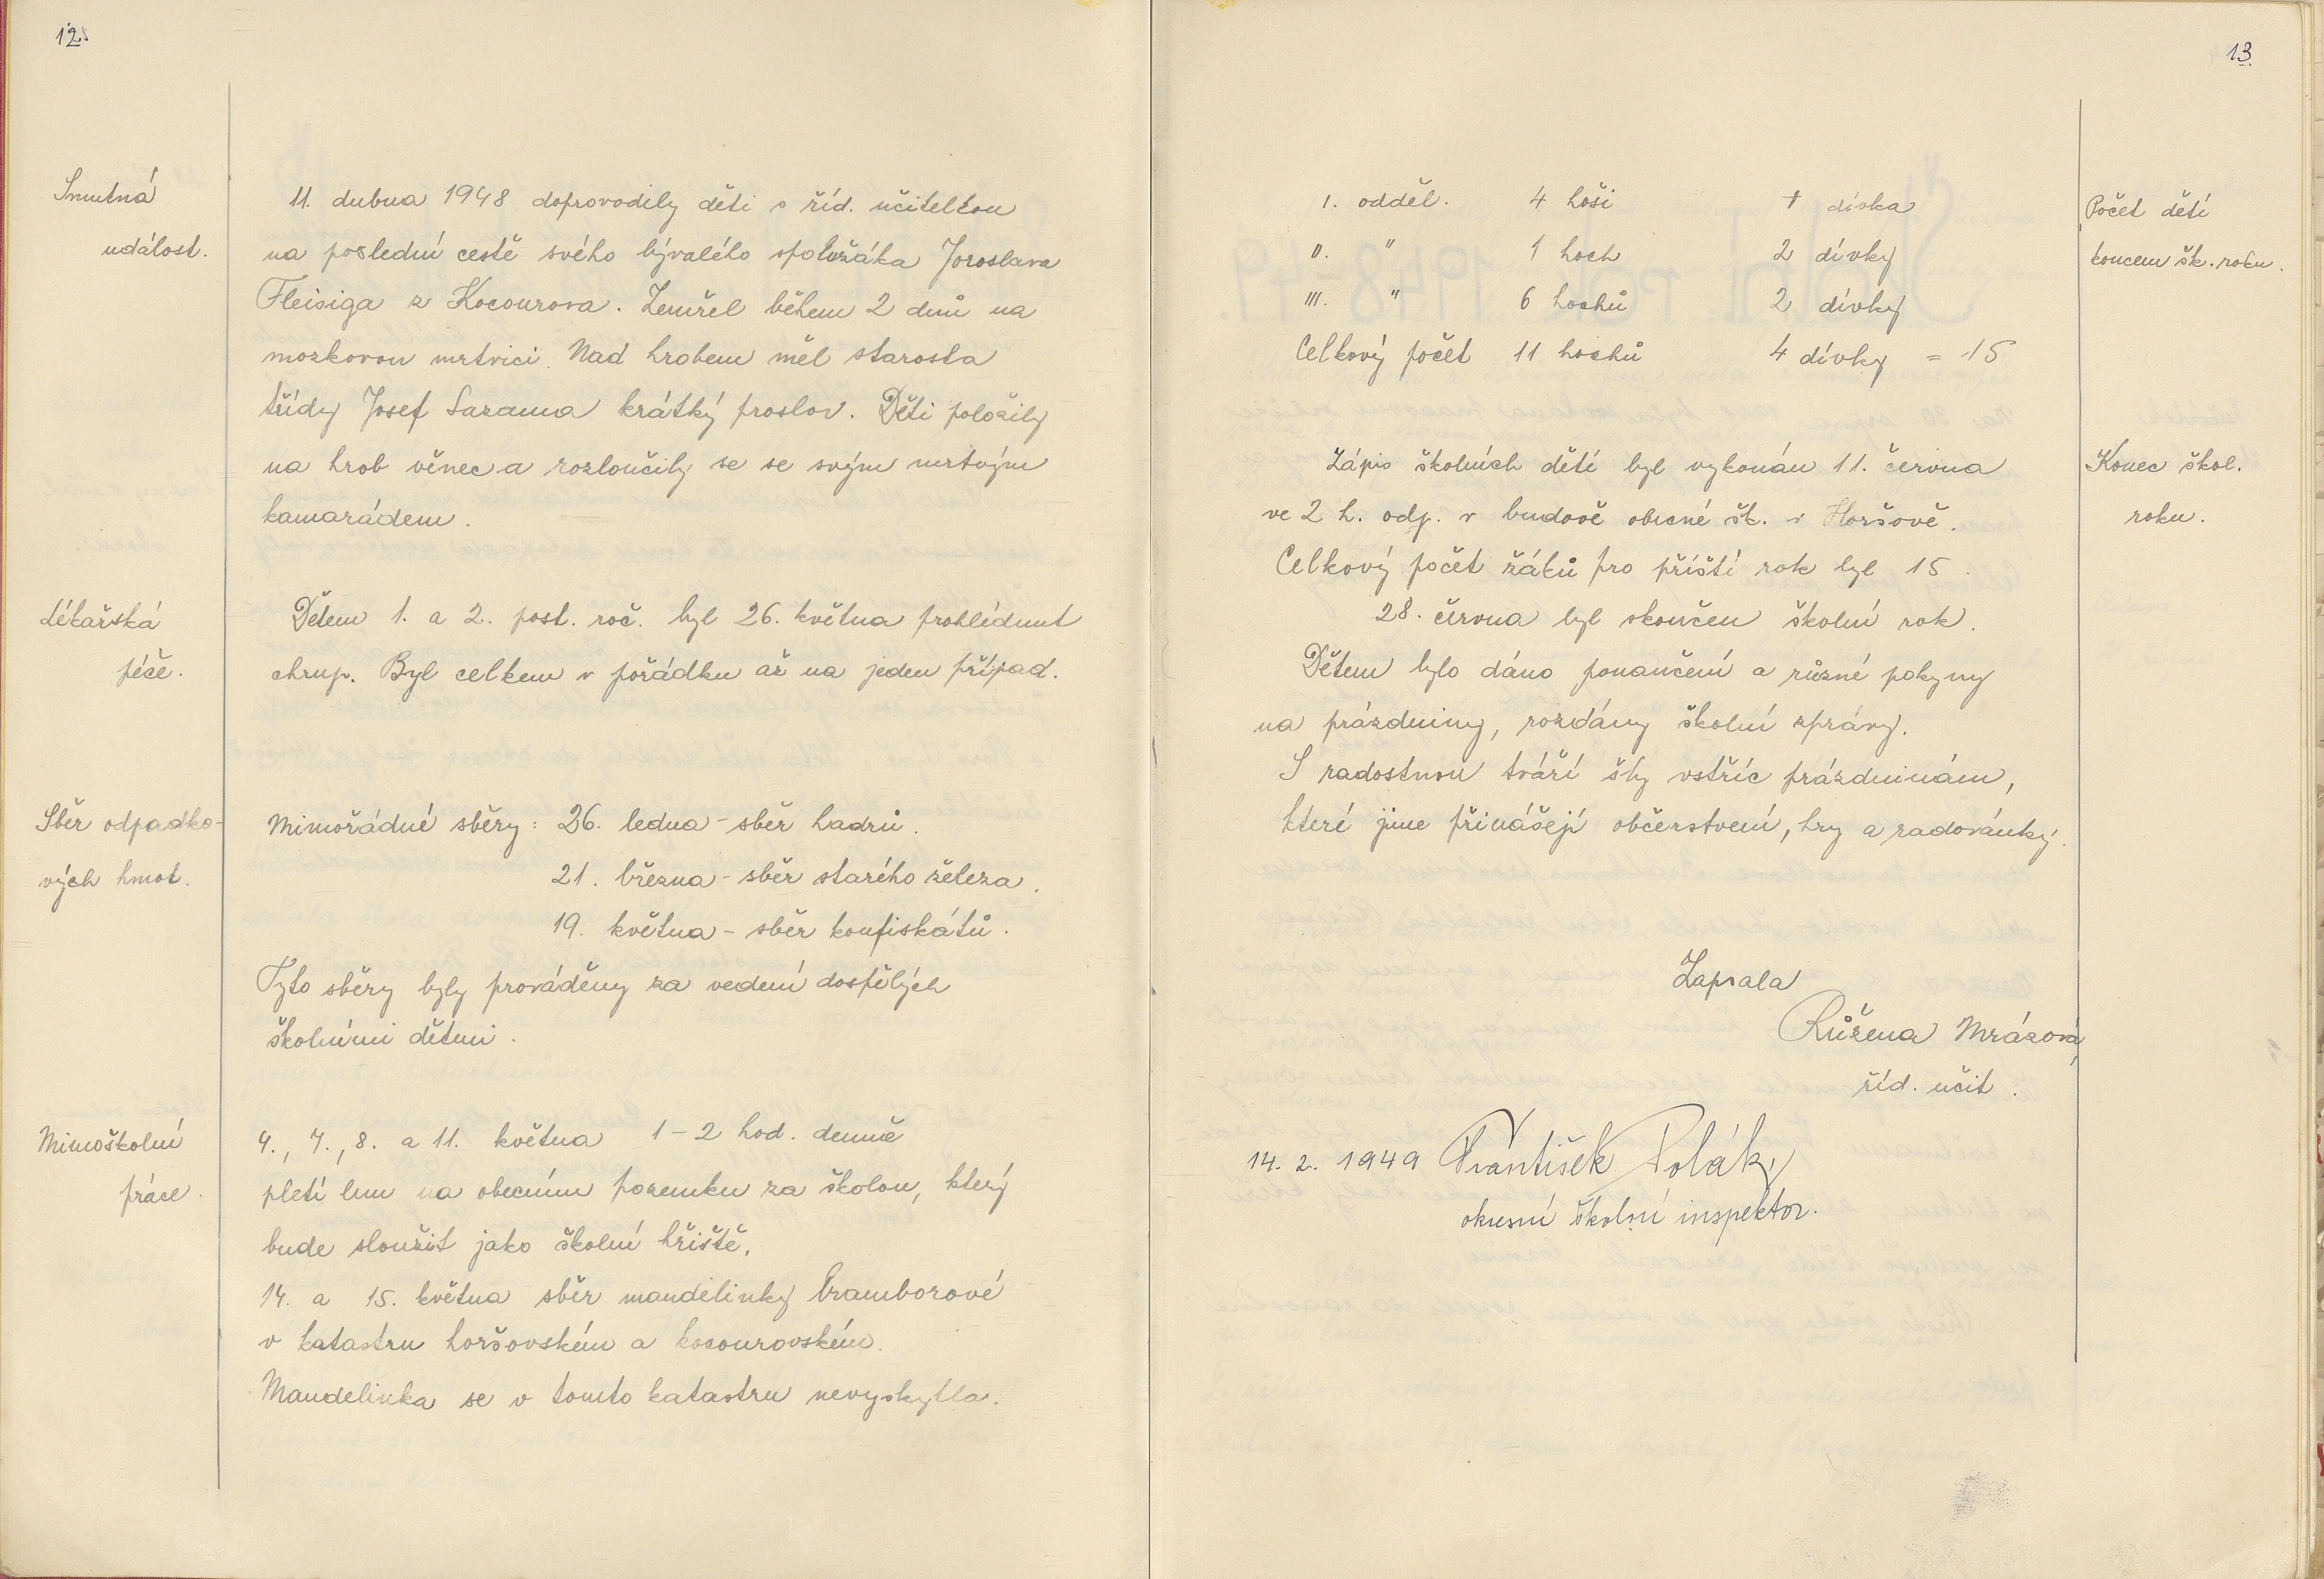 12.
Smutná
událost.
11. dubna 1948 doprovodily děti s říd. učitelkou
na poslední cestě svého bývalého spolužáka Jaroslava
Fleisiga z Kocourova. Zemřel během 2 dnů na
mozkovou mrtvici. Nad hrobem měl starosta
třídy Josef Sarama krátký proslov. Děti položily
na hrob věnec a rozloučily se se svým mrtvým
kamarádem.
Lékařská
péče.
Dětem 1. a 2. post. roč. byl 26. května prohlédnut
chrup. Byl celkem v pořádku až na jeden případ.
Sběr odpadko-
vých hmot.
Mimořádné sběry: 26. ledna - sběr hadrů.
21. března - sběr starého železa.
19. května - sběr konfiskátů.
Tyto sběry byly prováděny za vedení dospělých
školními dětmi.
Mimoškolní
práce.
4., 7., 8. a 11. května 1 - 2 hod. denně
pletí lnu na obecním pozemku za školou, který
bude sloužit jako školní hřiště.
14. a 15. května sběr mandelinky bramborové
v katastru horšovském a kocourovském.
Mandelinka se v tomto katastru nevyskytla.
13.
Počet dětí
koncem šk. roku.
I. odděl. 4 hoši dívka
II. " 1 hoch 2 dívky
III. " 6 hochů 2 dívky
Celkový počet 11 hochů 4 dívky = 15
Konec škol.
roku.
Zápis školních dětí byl vykonán 11. června
ve 2 h. odp. v budově obecné šk. v Horšově.
Celkový počet žáků pro příští rok byl 15.
28. června byl skončen školní rok.
Dětem bylo dáno ponaučení a různé pokyny
na prázdniny, rozdány školní zprávy.
S radostnou tváří šly vstříc prázdninám,
které jime přinášejí občerstvení, hry a radovánky.
Zapsala
Růžena Mrázová
říd. učit.
14. 2. 1949 František Polák,
okresní školní inspektor.